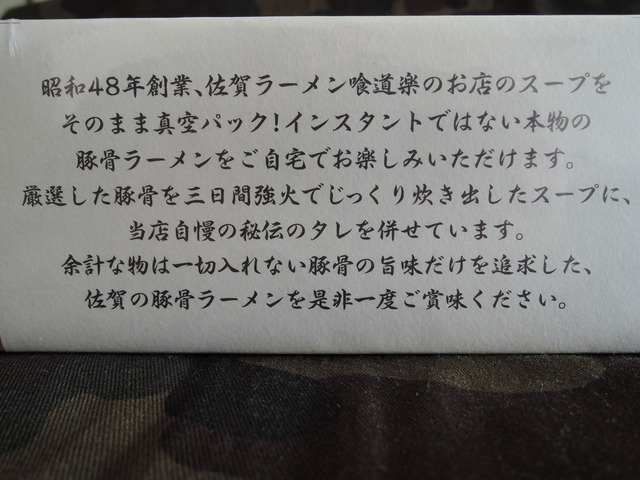 昭和48年創業、佐賀ラーメン喰道楽のお店のスープを
そのまま真空パック!インスタントではない本物の
豚骨ラーメンをご自宅でお楽しみいただけます。
厳選した豚骨を三日間強火でじっくり炊き出したスープに、
当店自慢の秘伝のタレを併せています。
余計な物は一切入れない豚骨の旨味だけを追求した、
佐賀の豚骨ラーメンを是非一度ご賞味ください。